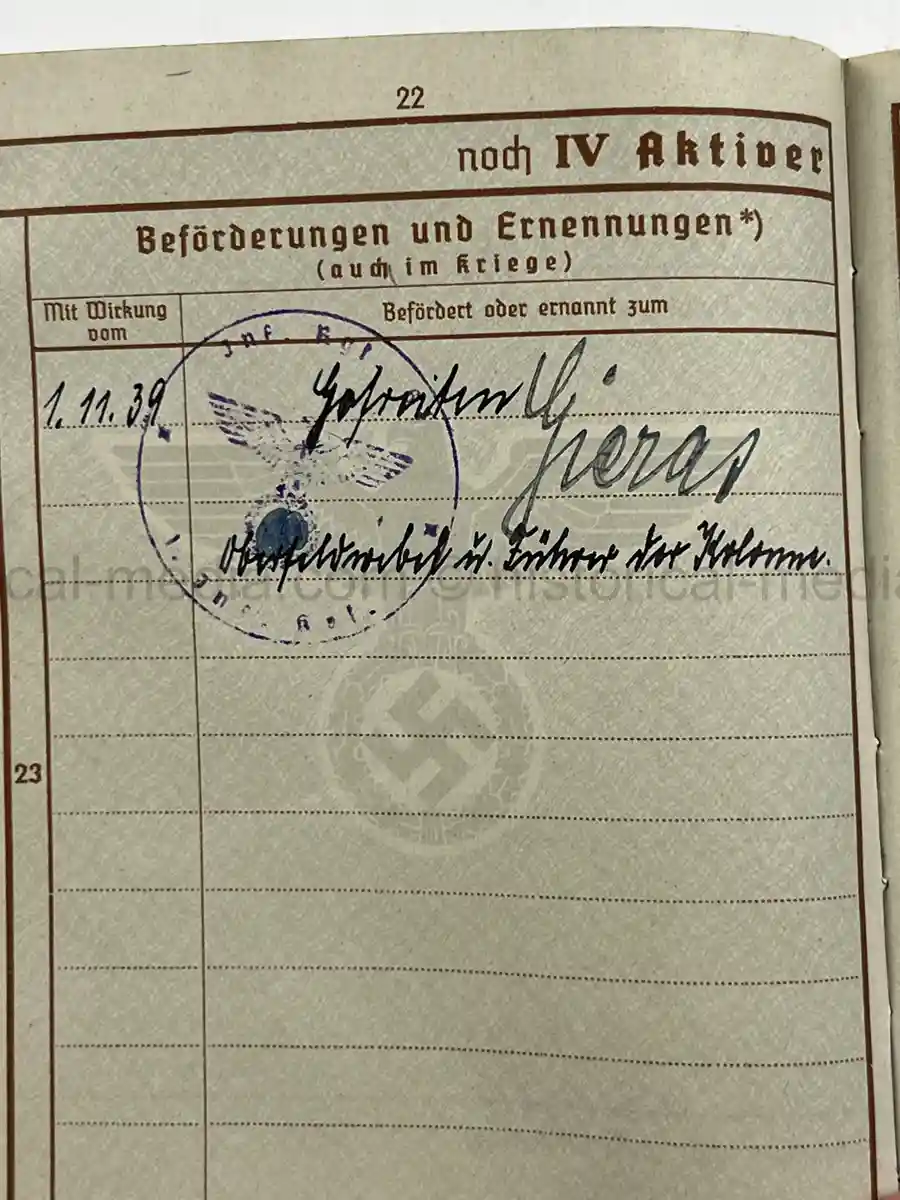 22
noch IV Aktiver
Beförderungen und Ernennungen*)
(auch im Kriege)
Mit Wirkung vom
Befördert oder ernannt zum
Inf. Rgt
1. 11. 39 Gefreiten
Gieras
Oberfeldwebel u. Führer der Kolonne.
cal-media.com © historical-media
Inf. Rgt.
23